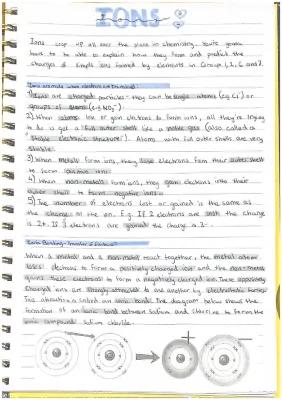 IONS
Ions crop up all over the place in chemistry. You're gonna
have to be able to explain how they form and predict the
charges of simple ions formed by elements in Groups 1, 2, 6 and 7.
Ions are made when electrons are transferred
1) Ions are charged particles - they can be single atoms (e.g Cl⁻) or
groups of atoms (e.g NO₃⁻).
2) When atoms lose or gain electrons to form ions, all they're trying
to do is get a full outer shell like a noble gas (also called a
"stable electronic structure"). Atoms with full outer shells are very
stable.
3) When metals form ions, they lose electrons from their outer shell
to form positive ions.
4) When non-metals form ions, they gain electrons into their
outer shell to form negative ions.
5) The number of electrons lost or gained is the same as
the charge on the ion. E.g. If 2 electrons are lost the charge
is 2+. If 3 electrons are gained the charge is 3-.
Ionic Bonding - Transfer of Electrons
When a metal and a non-metal react together, the metal atom
loses electrons to form a positively charged ion and the non-metal
gains these electrons to form a negatively charged ion. These oppositely
charged ions are strongly attracted to one another by electrostatic forces.
This attraction is called an ionic bond. The diagram below shows the
formation of an ionic bond between sodium and chlorine to form the
ionic compound sodium chloride.
+